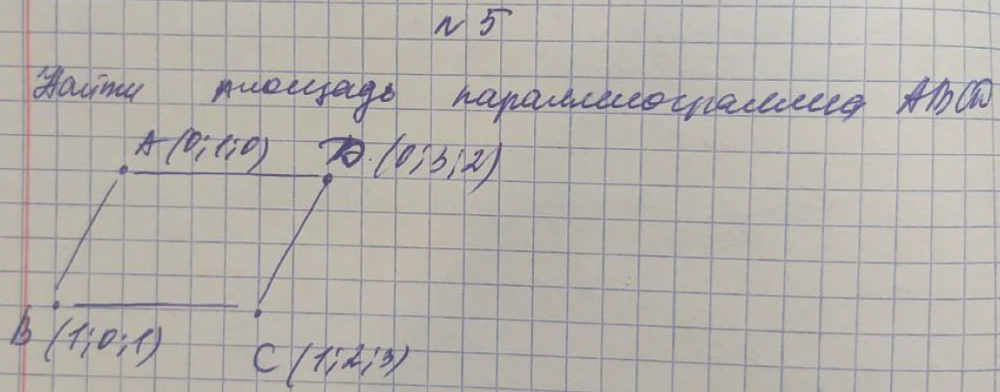 № 5
Найти площадь параллелограмма ABCD
A (0; 1; 0) D (0; 3; 2)
B (1; 0; 1)
C (1; 2; 3)